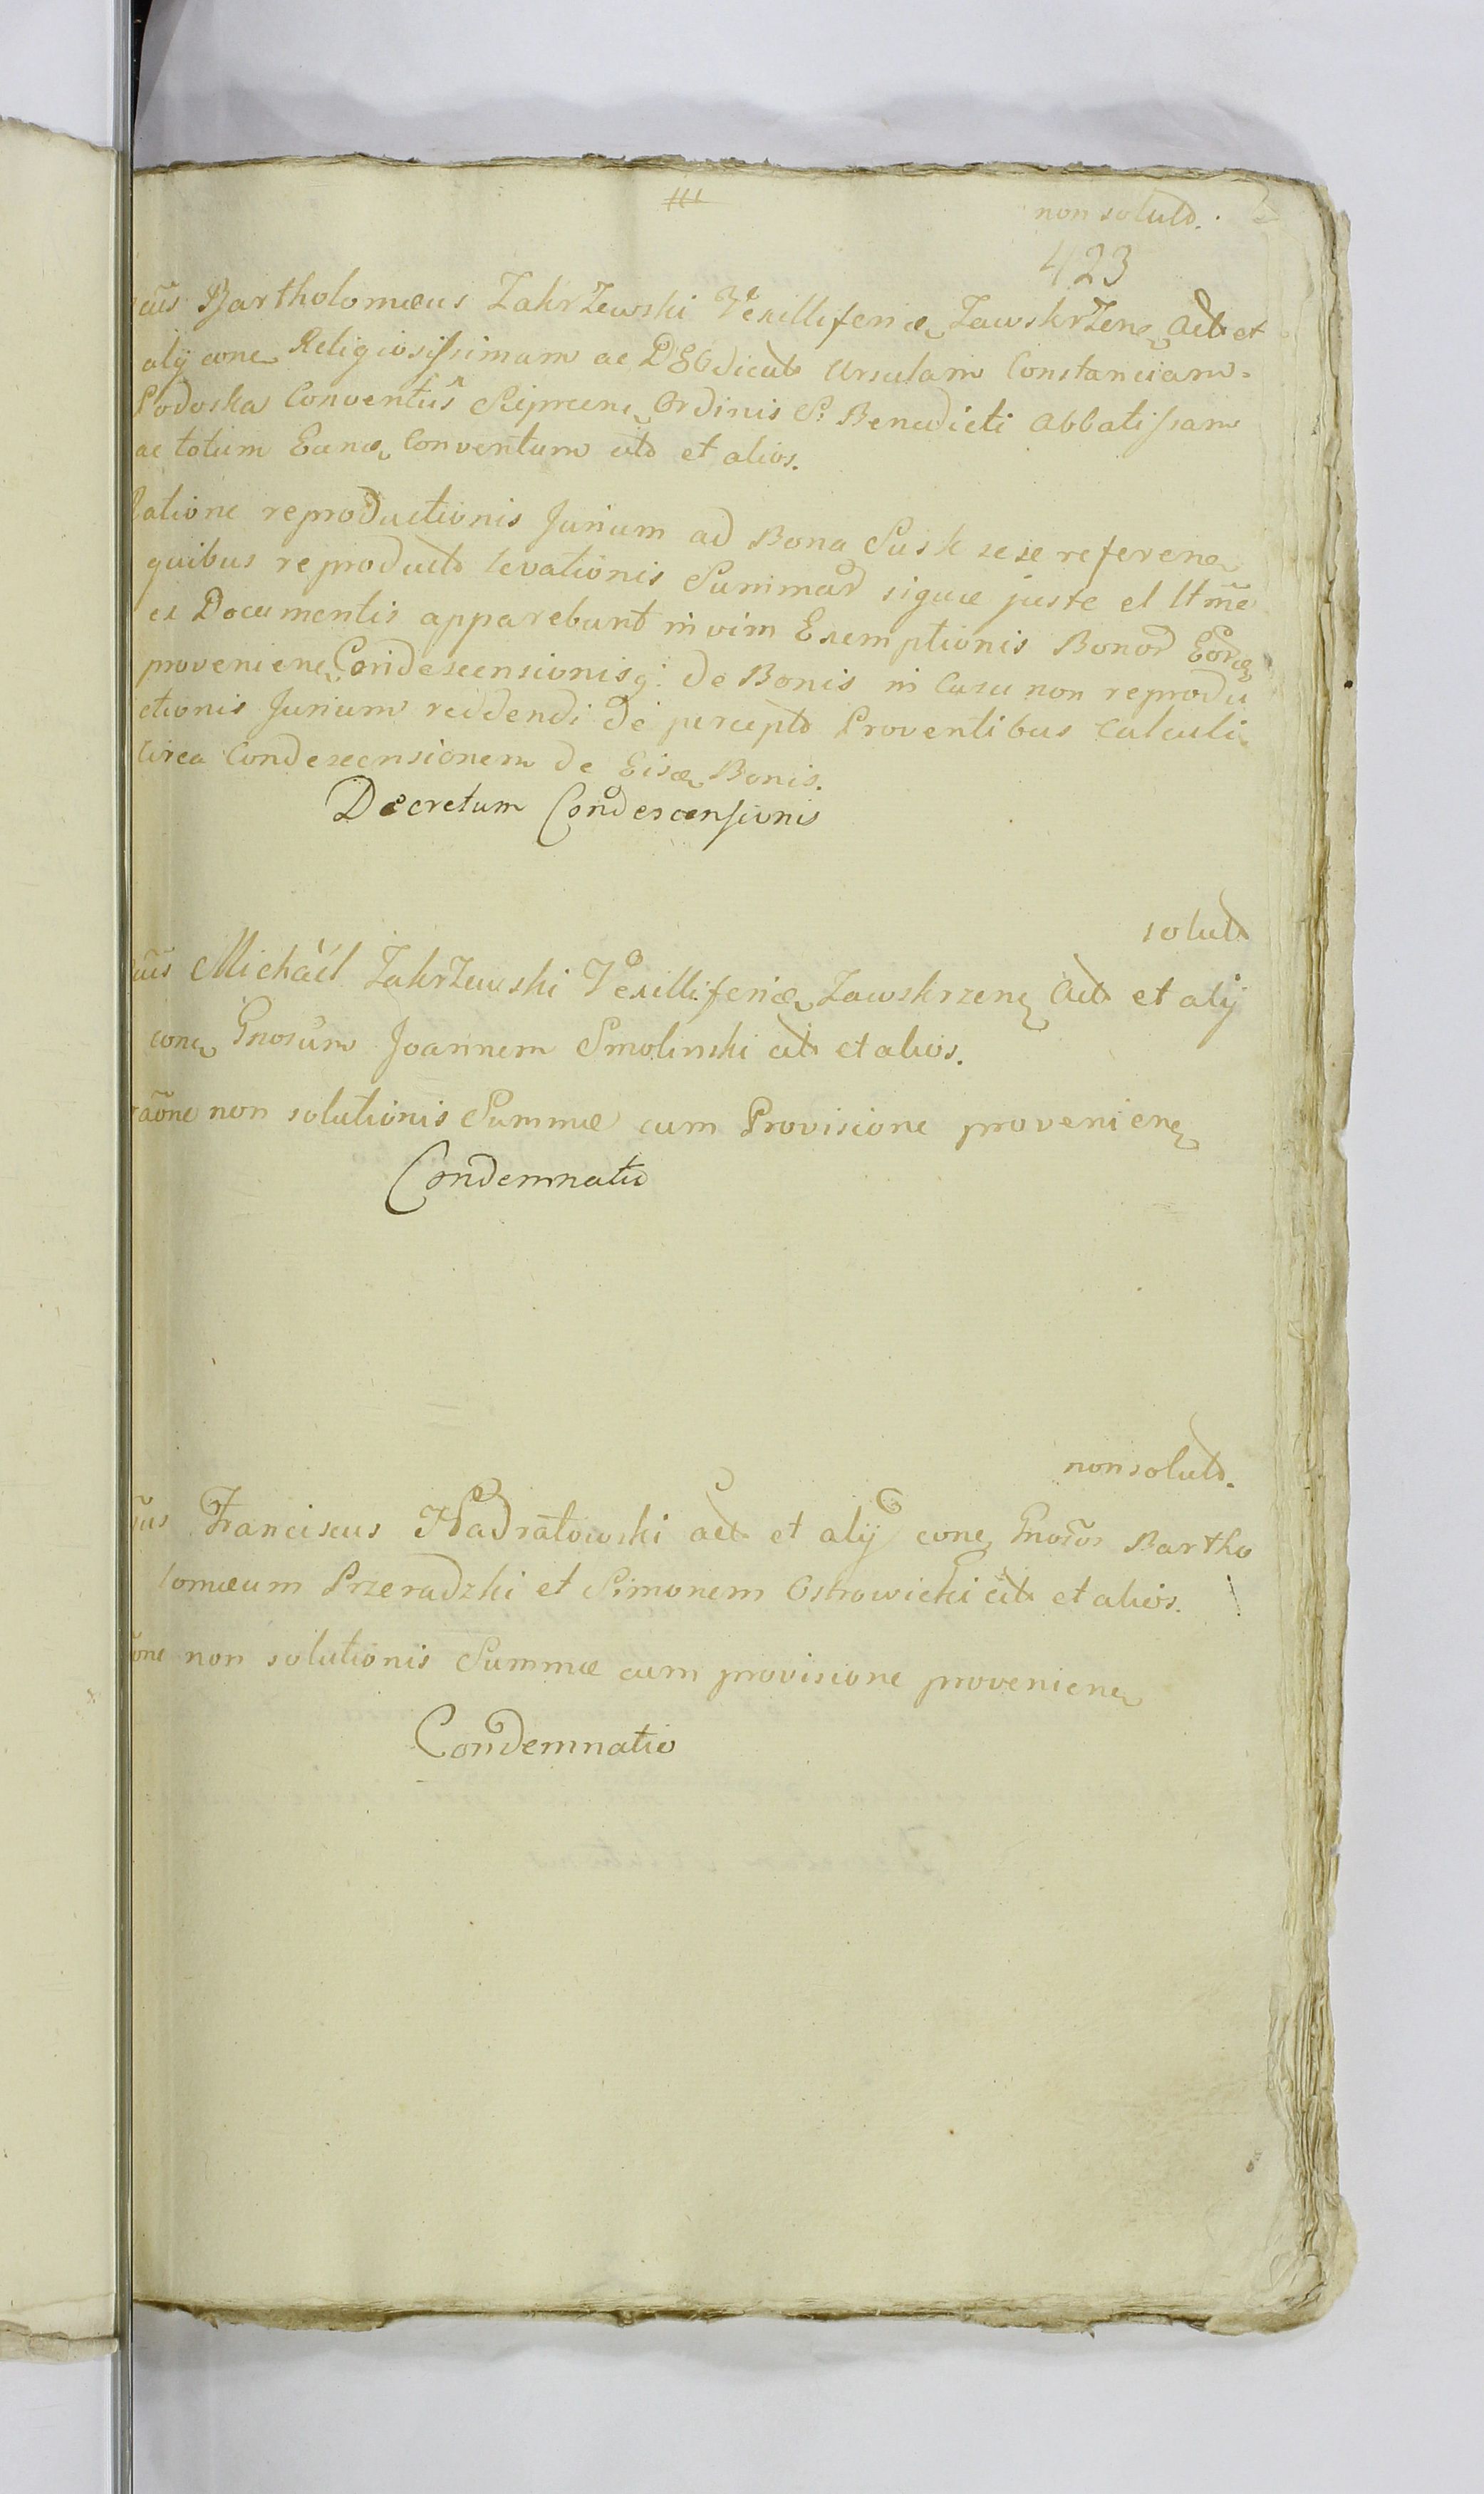 non solutd.
423
Bartholomæus Zakrzewski Vexilliferidæ Zawskrzen Act et
alij conc Religiosissimam ac Ursulam Constanciam
Podoska Conventûs Sieprcen Ordinis S. Benedicti Abbatissam
ac totum Eund Conventum citd et alios.
Ratione reproductionis Jurium ad Bona Susk sese referen
quibus reproductd levationis Summar siquæ juste et ltme
ex Documentis apparebunt in vim Exemptionis Bonor Eor
provenien Condescensionisq: de Bonis in Casu non reprodu
ctionis Jurium reddendi de perceptd Proventibus Calculi
Circa Condescensionem de Eisd Bonis.
Decretum Condescensionis
solutd
Michaël Zakrzewski Vexilliferidæ Zawskrzen Act et alij
conc Gnosum Joannem Smolinski cit et alios.
raõne non solutionis Summæ cum Provisione provenien
Condemnatio
non solutd.
Franciscus Nadratowski act et alij conc Gnosos Bartho
lomæum Przeradzki et Simonem Ostrowicki cit et alios.
non solutionis Summæ cum provisione provenien
Condemnatio